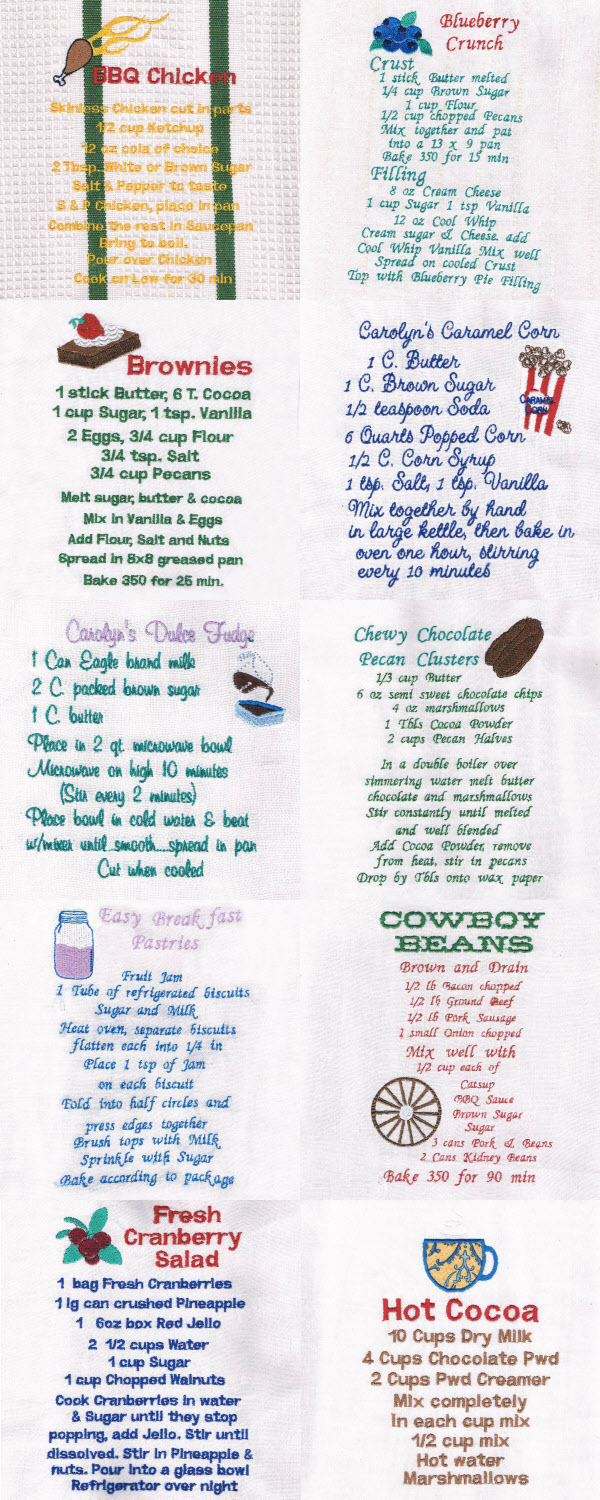 BBQ Chicken
Skinless Chicken cut in parts
1/2 cup Ketchup
12 oz cola of choice
2 Tbsp. White or Brown Sugar
Salt & Pepper to taste
S & P Chicken, place in pan
Combine the rest in Saucepan
Bring to boil.
Pour over Chicken
Cook on Low for 30 min
Blueberry
Crunch
Crust
1 stick Butter melted
1/4 cup Brown Sugar
1 cup Flour
1/2 cup chopped Pecans
Mix together and pat
into a 13 x 9 pan
Bake 350 for 15 min
Filling
8 oz Cream Cheese
1 cup Sugar 1 tsp Vanilla
12 oz Cool Whip
Cream sugar & Cheese, add
Cool Whip Vanilla Mix well
Spread on cooled Crust
Top with Blueberry Pie Filling
Brownies
1 stick Butter, 6 T. Cocoa
1 cup Sugar, 1 tsp. Vanilla
2 Eggs, 3/4 cup Flour
3/4 tsp. Salt
3/4 cup Pecans
Melt sugar, butter & cocoa
Mix in Vanilla & Eggs
Add Flour, Salt and Nuts
Spread in 8x8 greased pan
Bake 350 for 25 min.
Carolyn's Caramel Corn
1 C. Butter
1 C. Brown Sugar
1/2 teaspoon Soda
6 Quarts Popped Corn
1/2 C. Corn Syrup
1 tsp. Salt, 1 tsp. Vanilla
Mix together by hand
in large kettle, then bake in
oven one hour, stirring
every 10 minutes
Caramel
Corn
Carolyn's Dulce Fudge
1 Can Eagle brand milk
2 C. packed brown sugar
1 C. butter
Place in 2 qt. microwave bowl
Microwave on high 10 minutes
(Stir every 2 minutes)
Place bowl in cold water & beat
w/mixer until smooth....spread in pan
Cut when cooled
Chewy Chocolate
Pecan Clusters
1/3 cup Butter
6 oz semi sweet chocolate chips
4 oz marshmallows
1 Tbls Cocoa Powder
2 cups Pecan Halves
In a double boiler over
simmering water melt butter
chocolate and marshmallows
Stir constantly until melted
and well blended
Add Cocoa Powder, remove
from heat, stir in pecans
Drop by Tbls onto wax paper
Easy Breakfast
Pastries
Fruit Jam
1 Tube of refrigerated biscuits
Sugar and Milk
Heat oven, separate biscuits
flatten each into 1/4 in
Place 1 tsp of Jam
on each biscuit
Fold into half circles and
press edges together
Brush tops with Milk
Sprinkle with Sugar
Bake according to package
COWBOY
BEANS
Brown and Drain
1/2 lb Bacon chopped
1/2 lb Ground Beef
1/2 lb Pork Sausage
1 small Onion chopped
Mix well with
1/2 cup each of
Catsup
BBQ Sauce
Brown Sugar
Sugar
3 cans Pork & Beans
2 Cans Kidney Beans
Bake 350 for 90 min
Fresh
Cranberry
Salad
1 bag Fresh Cranberries
1 lg can crushed Pineapple
1 6oz box Red Jello
2 1/2 cups Water
1 cup Sugar
1 cup Chopped Walnuts
Cook Cranberries in water
& Sugar until they stop
popping, add Jello. Stir until
dissolved. Stir in Pineapple &
nuts. Pour into a glass bowl
Refrigerator over night
Hot Cocoa
10 Cups Dry Milk
4 Cups Chocolate Pwd
2 Cups Pwd Creamer
Mix completely
In each cup mix
1/2 cup mix
Hot water
Marshmallows